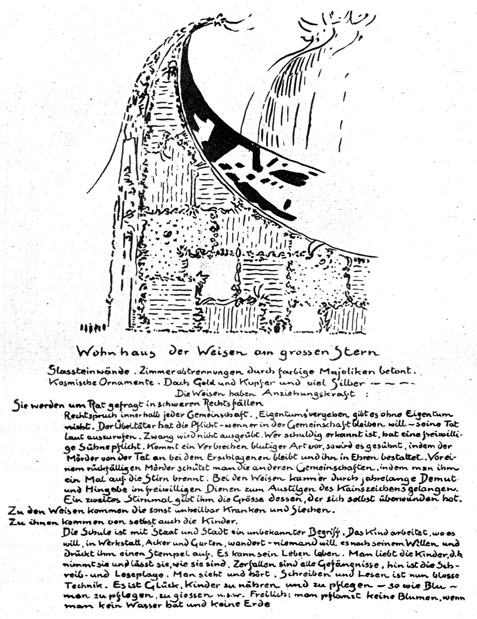 Wohnhaus der Weisen am grossen Stern
Glassteinwände. Zimmerabtrennungen durch farbige Majoliken betont.
Kosmische Ornamente. Dach Gold und Kupfer und viel Silber ----
Die Weisen haben Anziehungskraft:
Sie werden um Rat gefragt in schweren Rechtsfällen
Rechtspruch innerhalb jeder Gemeinschaft. „Eigentums"vergehen gibt es ohne Eigentum
nicht. Der Übeltäter hat die Pflicht – wenn er in der Gemeinschaft bleiben will – seine Tat
laut auszurufen. Zwang wird nicht ausgeübt. Wer schuldig erkannt ist, hat eine freiwilli-
ge Sühnepflicht. Kommt ein Verbrechen blutiger Art vor, so wird es gesühnt, indem der
Mörder von der Tat an bei dem Erschlagenen bleibt und ihn in Ehren bestattet. Vor ei-
nem rückfälligen Mörder schützt man die anderen Gemeinschaften, indem man ihm
ein Mal auf die Stirn brennt. Bei den Weisen kann er durch jahrelange Demut
und Hingabe im freiwilligen Dienen zum Austilgen des Kainszeichens gelangen.
Ein zweites Stirnmal gibt ihm die Grösse dessen, der sich selbst überwunden hat.
Zu den Weisen kommen die sonst unheilbar Kranken und Siechen.
Zu ihnen kommen von selbst auch die Kinder.
Die Schule ist mit Staat und Stadt ein unbekannter Begriff. Das Kind arbeitet, wo es
will, in Werkstatt, Acker und Garten, wandert – niemand will, es nach seinem Willen, und
drückt ihm einen Stempel auf. Es kann sein Leben leben. Man liebt die Kinder, d.h.
nimmt sie und lässt sie, wie sie sind. Zerfallen sind alle Gefängnisse, hin ist die Sch-
reib- und Leseplage. Man sieht und hört. Schreiben und Lesen ist nun blosse
Technik. Es ist Glück, Kinder zu nähren und zu pflegen – so wie Blu-
men zu pflegen, zu giessen u.s.w. Freilich: man pflanzt keine Blumen, wenn
man kein Wasser hat und keine Erde